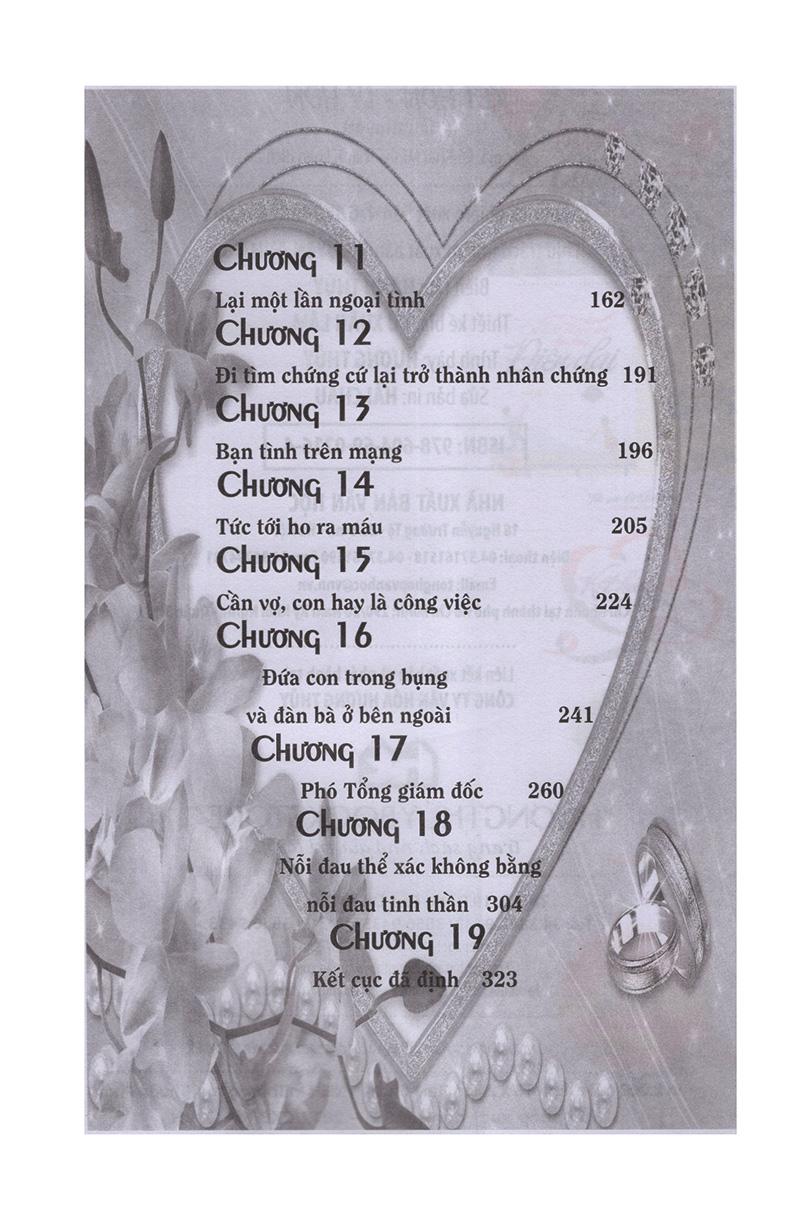 Chương 11
Lại một lần ngoại tình 162
Chương 12
Đi tìm chứng cứ lại trở thành nhân chứng 191
Chương 13
Bạn tình trên mạng 196
Chương 14
Tức tới ho ra máu 205
Chương 15
Cần vợ, con hay là công việc 224
Chương 16
Đứa con trong bụng
và đàn bà ở bên ngoài 241
Chương 17
Phó Tổng giám đốc 260
Chương 18
Nỗi đau thể xác không bằng
nỗi đau tinh thần 304
Chương 19
Kết cục đã định 323